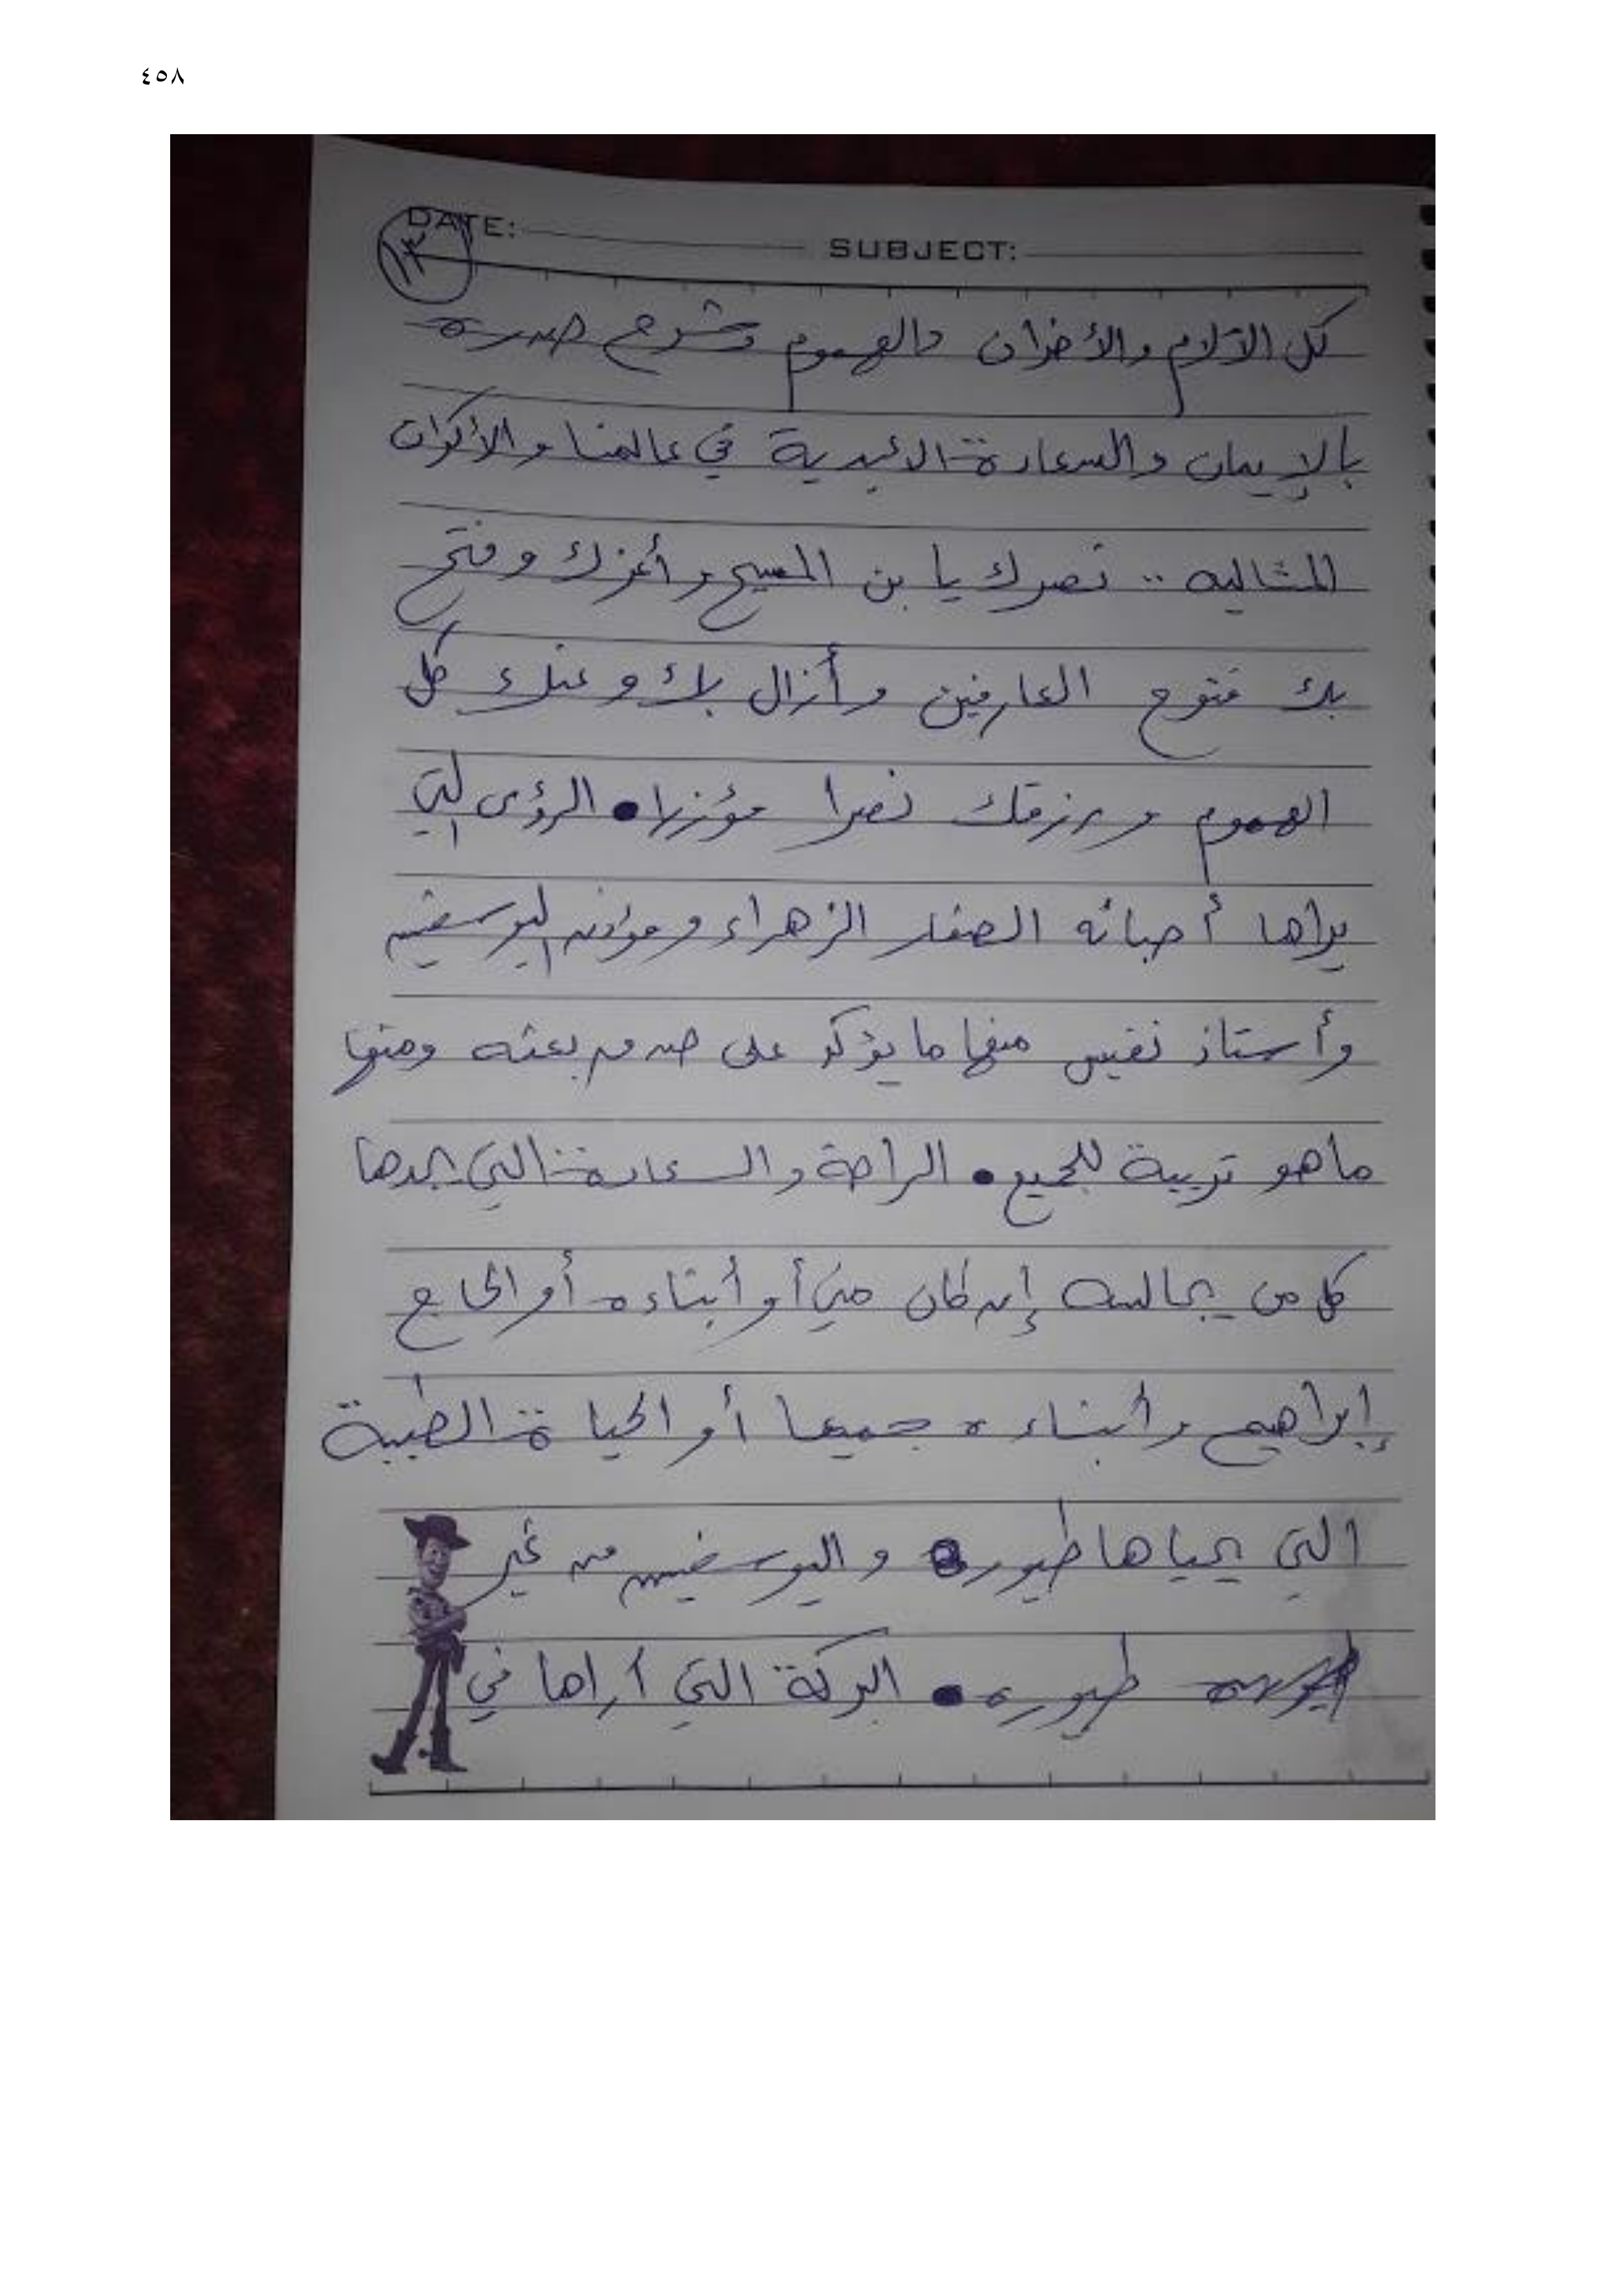 ٤٥٨
DATE: SUBJECT:
١٣
كل الآلام والأحزان والهموم وشرح صدره
بالإيمان والسعادة الأبدية في عالمنا والأكوان
المثاليه .. نصرك يا بن المسيح وأعزك وفتح
بك فتوح العارفين وأزال بك وعنك كل
الهموم ويرزقك نصرا مؤزرا • الرؤى التي
يراها أحبائه الصغار الزهراء و اليوسفيين
وأستاذ نفيس منها ما يؤكد على صدق بعثه ومنها
ما هو تربية للجميع • الراحة والسعادة التي يجدها
كل من يجالسه إن كان مني أو أبناءه أو الحاج
إبراهيم وأبناءه جميعا أو الحياة الطيبة
التي يحياها طيوره واليوسفيين من غير
طيوره • البركة التي أراها في